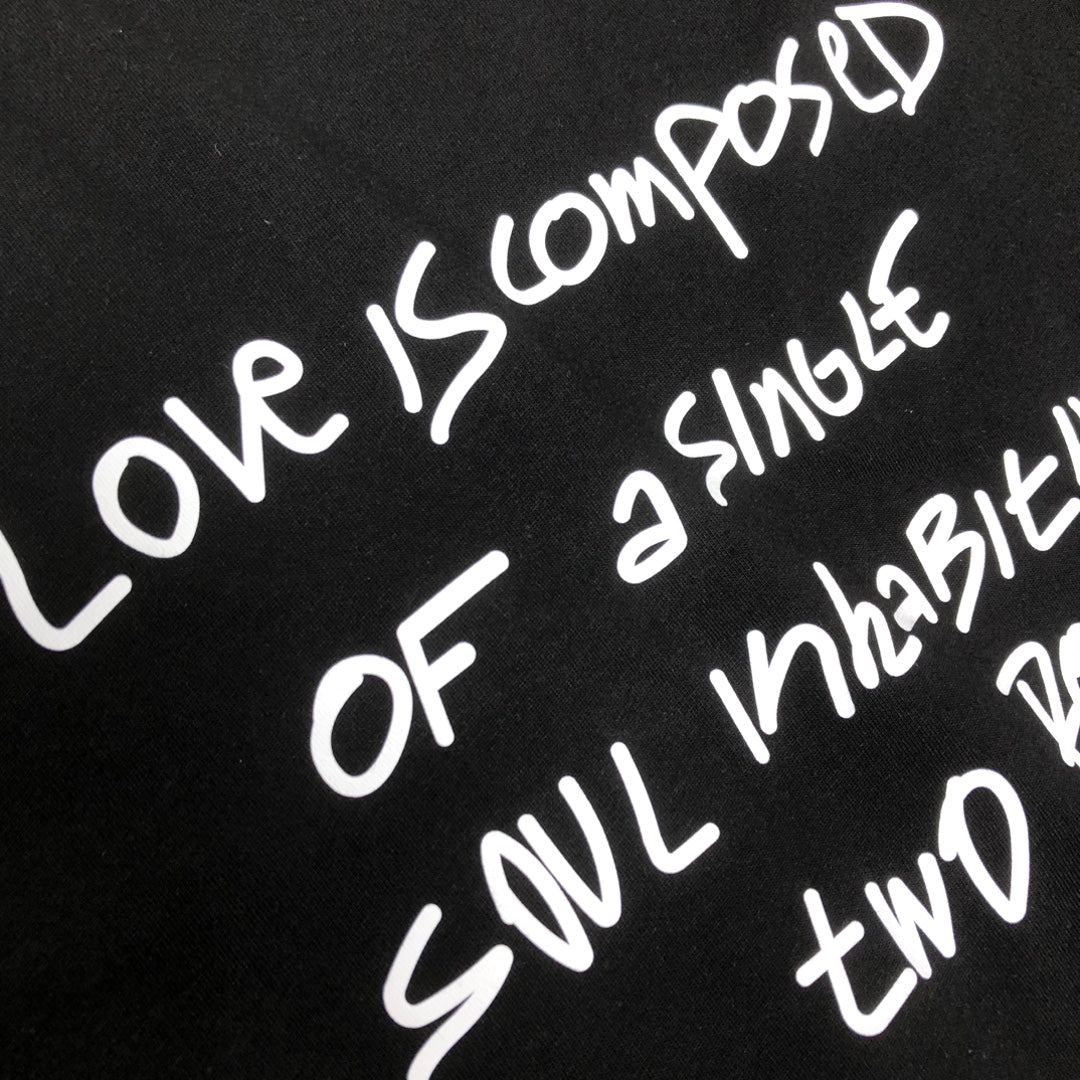 LOVE IS COMPOSED
OF a SINGLE
SOUL INHABITI
TWO